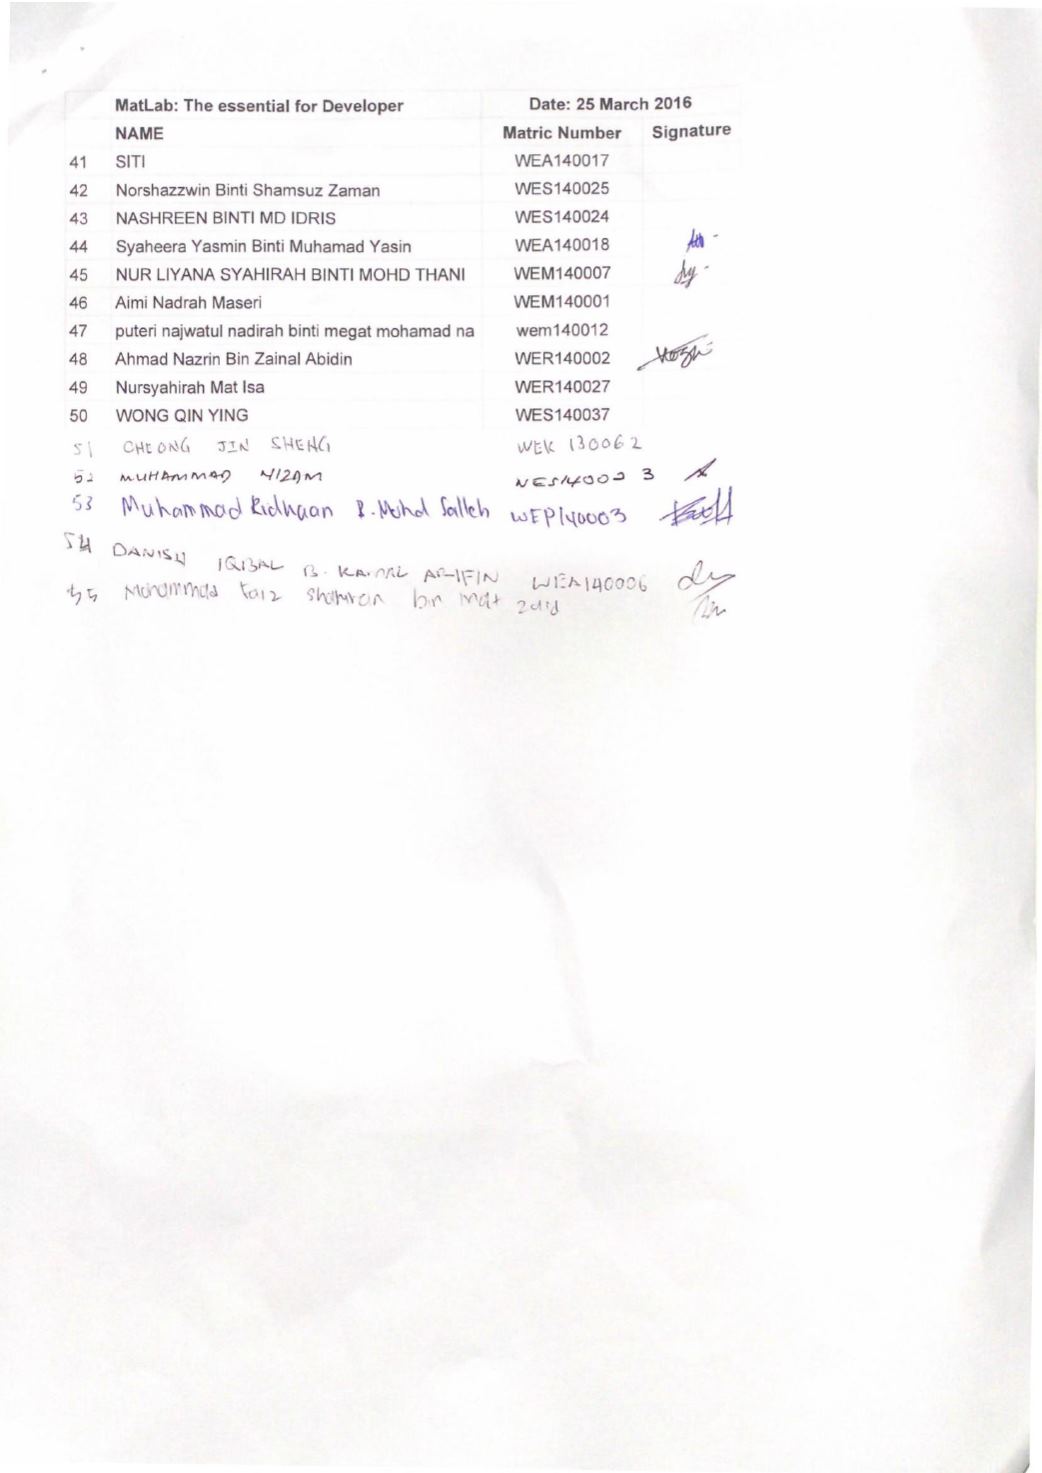 MatLab: The essential for Developer Date: 25 March 2016
NAME Matric Number Signature
41 SITI WEA140017
42 Norshazzwin Binti Shamsuz Zaman WES140025
43 NASHREEN BINTI MD IDRIS WES140024
44 Syaheera Yasmin Binti Muhamad Yasin WEA140018
45 NUR LIYANA SYAHIRAH BINTI MOHD THANI WEM140007
46 Aimi Nadrah Maseri WEM140001
47 puteri najwatul nadirah binti megat mohamad na wem140012
48 Ahmad Nazrin Bin Zainal Abidin WER140002
49 Nursyahirah Mat Isa WER140027
50 WONG QIN YING WES140037
51 CHEONG JIN SHENG WEK 130062
52 MUHAMMAD
53 Muhammad Ridhaan B. Mohd Salleh WEP140003
54 DANISH IQBAL B. KAMAL ARIFIN WEA140006
55 bin mat